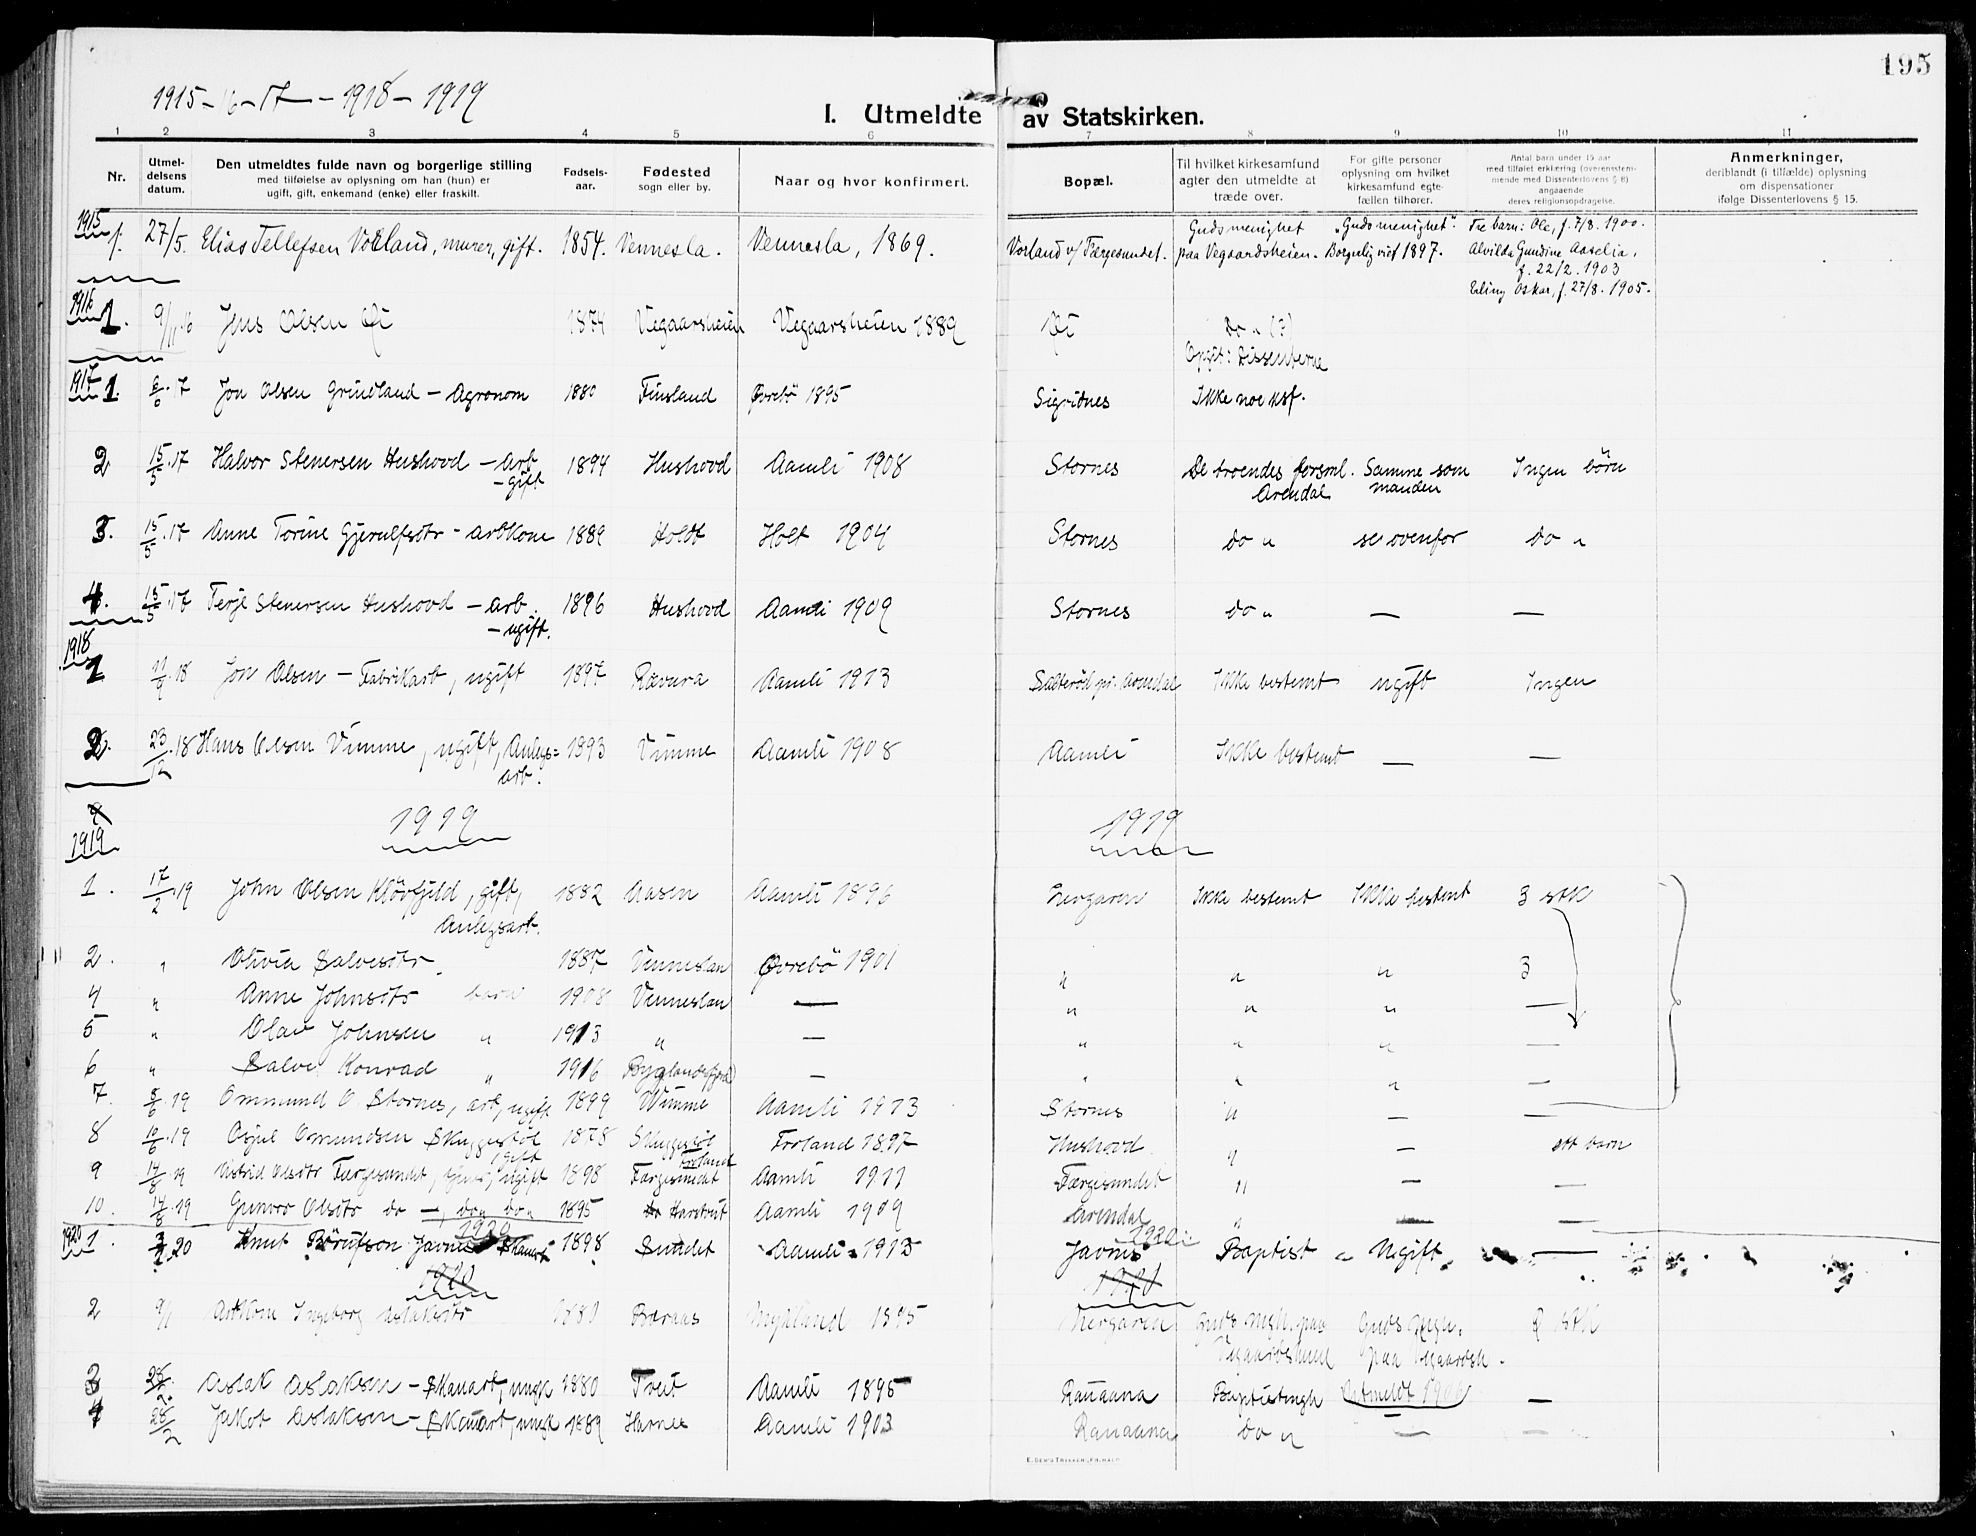 195
1915-16-17-1918-1919
I. Utmeldte av Statskirken.
1 2 3 4 5 6 7 8 9 10 11
Nr.
Utmel-
delsens
datum.
Den utmeldtes fulde navn og borgerlige stilling
med tilføielse av oplysning om han (hun) er
ugift, gift, enkemand (enke) eller fraskilt.
Fødsels-
aar.
Fødested
sogn eller by.
Naar og hvor konfirmert.
Bopæl.
Til hvilket kirkesamfund
agter den utmeldte at
træde over.
For gifte personer
oplysning om hvilket
kirkesamfund egte-
fællen tilhører.
Antal barn under 15 aar
med tilføiet erklæring (overensstem-
mende med Dissenterlovens § 8)
angaaende
deres religionsopdragelse.
Anmerkninger,
deriblandt (i tilfælde) oplysning
om dispensationer
ifølge Dissenterlovens § 15.
1915
1. 27/5. Elias Tellefsen Vorland, murer, gift. 1854. Vennesla. Vennesla, 1869. Vorland v/ Færgesundet. Guds menighet paa Vegaardsheien. "Guds menighet". Borgerlig viet 1897. Tre barn: Ole, f. 7/8. 1900.
Alvilda Gundine Aaselia,
f. 22/2. 1903
Erling Oskar, f. 27/8. 1905.
1916
1. 9/11.16 Jens Olsen 1874 Vegaarsheien Vegaarsheien 1889 Do " (?)
Opgit: Dissenterne
1917
1. 17 Jon Olsen Grindland - Agronom 1880 Finsland Øvrebö 1895 Sigridnes Ikke noe ksf.
2 15/5.17 Halvor Stenersen Hushovd - arb - gift 1894 Hushovd Aamli 1908 Stornes De troendes forsml. Arendal Samme som manden Ingen börn
3. 15/5.17 Anne Torine Gjerulfsdtr - arbkone 1889 Holdt Holt 1904 Stornes do " se ovenfor do "
4. 15/5.17 Terje Stenersen Hushovd - arb. - ugift. 1896 Hushovd Aamli 1909 Stornes do " — —
1918
1 11/9.18 Jon Olsen - Fabrikarb, ugift 1897 Rævura Aamli 1913 Salteröd pr. Arendal Ikke bestemt ugift Ingen
2. 23/12.18 Hans Olsen Vimme, ugift, Anlegs=
arb. 1893 Vimme Aamli 1908 Aamli Ikke bestemt — —
1919 1919 1919
1. 17/2.19 John Olsen Klövfjeld, gift,
Anlegsarb. 1882 Aasen Aamli 1896 Ikke bestemt Ikke bestemt 3 stk
2. " Olivia Salvesdtr 1887 Venneslan Øvrebö 1901 " " " 3
4 " Anne Johnsdtr barn 1908 Venneslan — " " " —
5 " Olav Johnsen " 1913 " — " " " —
6 " Salve Konrad " 1916 Byglandsfjord — " " " —
7. 19 Ommund O. Stornes, arb, ugift 1899 Wimme Aamli 1913 Stornes " — —
8 10/6.19 Omundsen Skuggestöl, gift 1878 Skuggestöl Froland Froland 1897 Hushovd " — barn
9 14/8.19 Astrid Olsdtr Færgesundet, tjener, ugift 1898 Færgesundet Aamli 1911 Færgesundet " — —
10. 14/8.19 Gunvor Olsdtr do —, do " do " 1895 Aamli 1909 Arendal " — —
1920 1920 1920
1. 20 Knut 1898 Sundet Aamli 1913 Baptist Ugift —
1920 1920
2 9/1 Arbkone Ingeborg Aslaksdtr 1880 Mykland 1895 Guds Mgh. paa Guds Mgh. 2 stk
Vegaardsheiene paa Vegaardsh.
3 Aslak Aslaksen - Skauarb, ungk 1880 Treit Aamli 1895 Ranaana Baptistmgh Udmeldt 1906 —
4 28/2 Jakob Aslaksen - Skauarb, ungk 1889 Harnes Aamli 1903 Ranaana do " — —